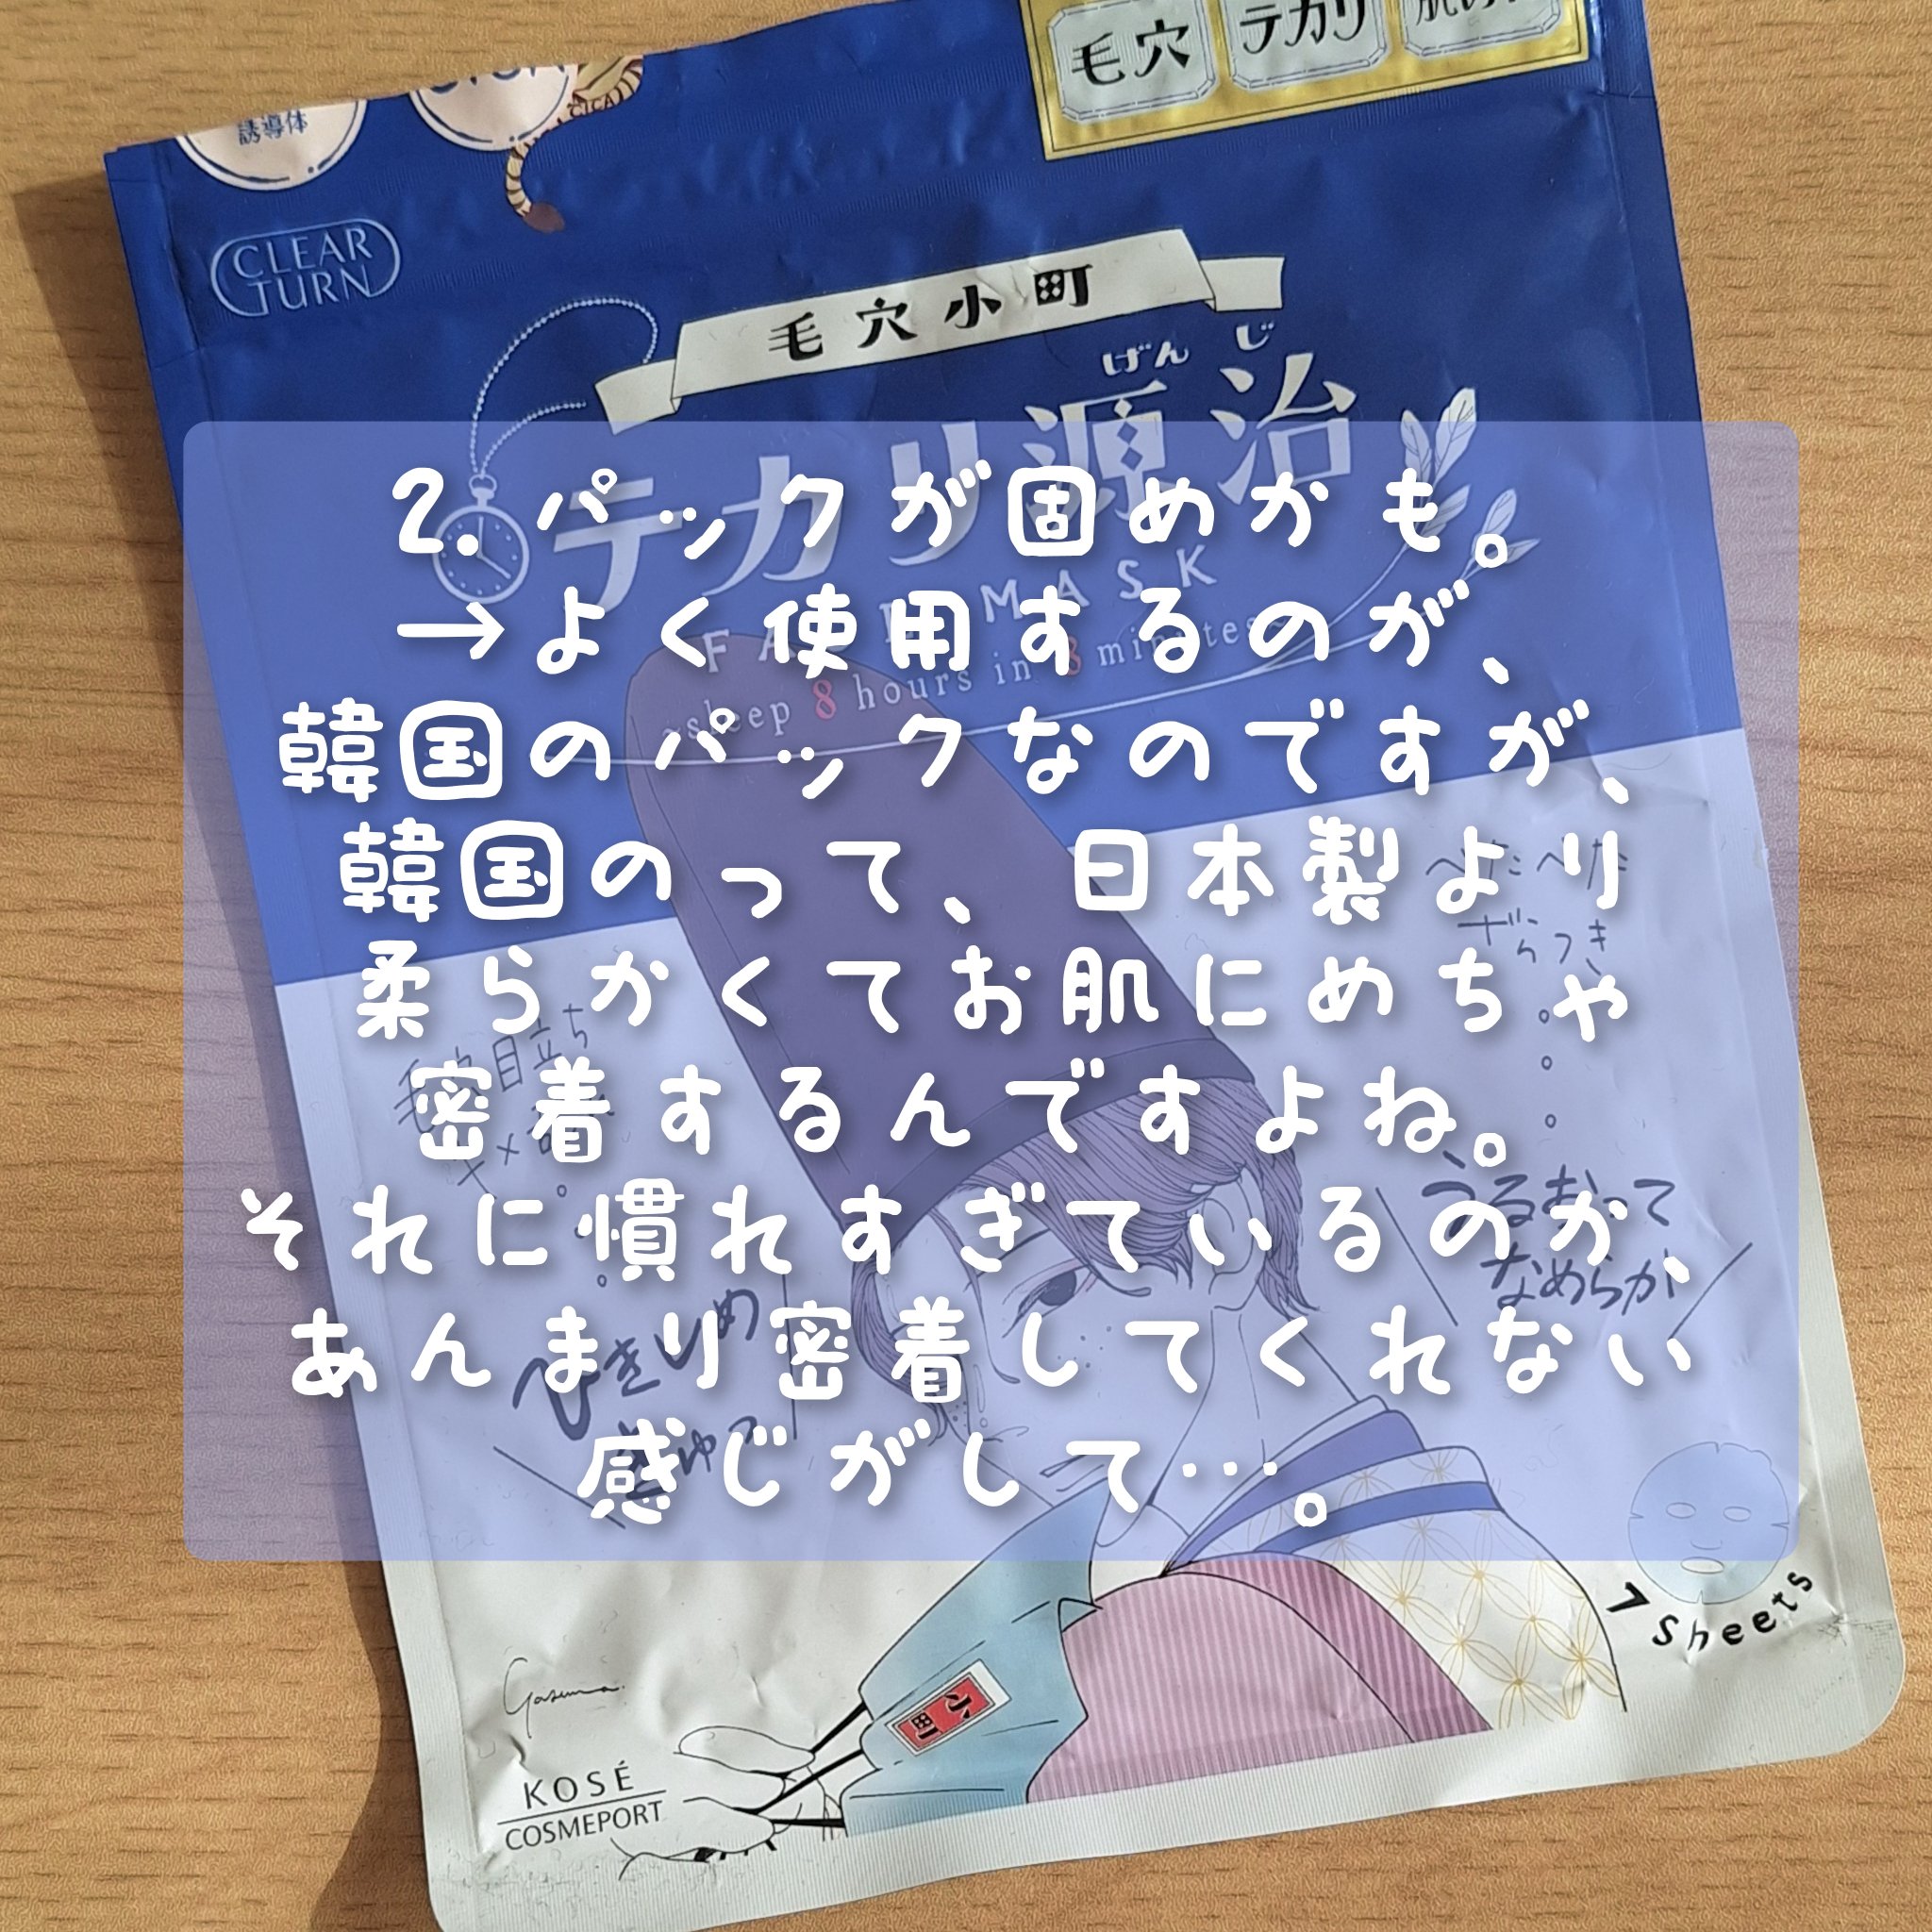 誘導体
CICA
毛穴
テカリ
CLEAR
TURN
毛穴小町
げんじ
テカリ源治
MASK
~sleep 8 hours in 8 minutes~
2. パックが固めかも。
→よく使用するのが、
韓国のパックなのですが、
韓国のって、日本製より
柔らかくてお肌にめちゃ
密着するんですよね。
それに慣れすぎているのか、
あんまり密着してくれない
感じがして…。
べたべた
ざらつき
毛穴目立ち
うるおって
なめらか
ひきしめ
きゅっ
7 Sheets
小町
KOSÉ
COSMEPORT